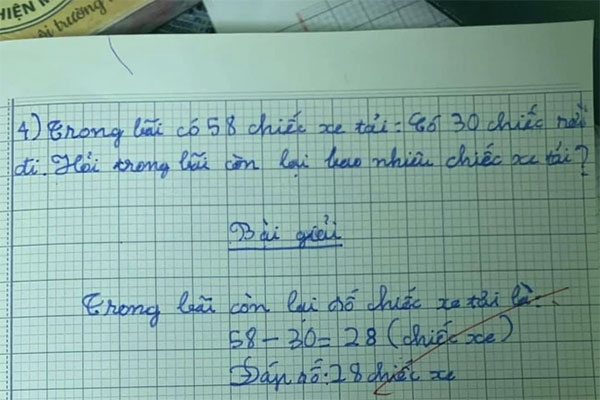 HIỆN M
ôi trường
4) Trong bãi có 58 chiếc xe tải: Có 30 chiếc rời
đi. Hỏi trong bãi còn lại bao nhiêu chiếc xe tải?
Bài giải
Trong bãi còn lại số chiếc xe tải là:
58 - 30 = 28 (chiếc xe)
Đáp số: 28 chiếc xe